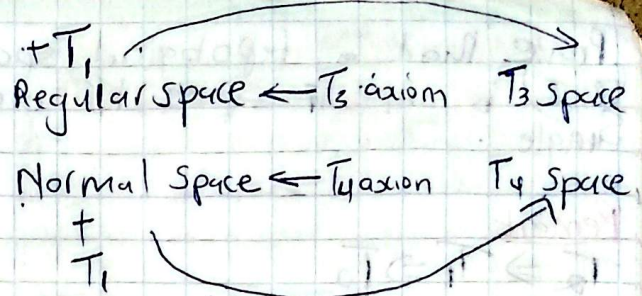 + T₁
Regular space ← T₃ axiom T₃ space
Normal space ← T₄ axion T₄ space
+
T₁